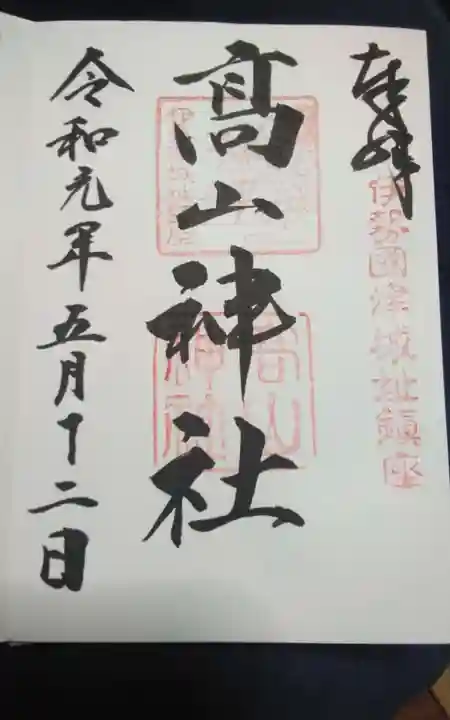 奉拝
伊勢國津城址鎮座
髙山神社
高山神社
令和元年五月十二日